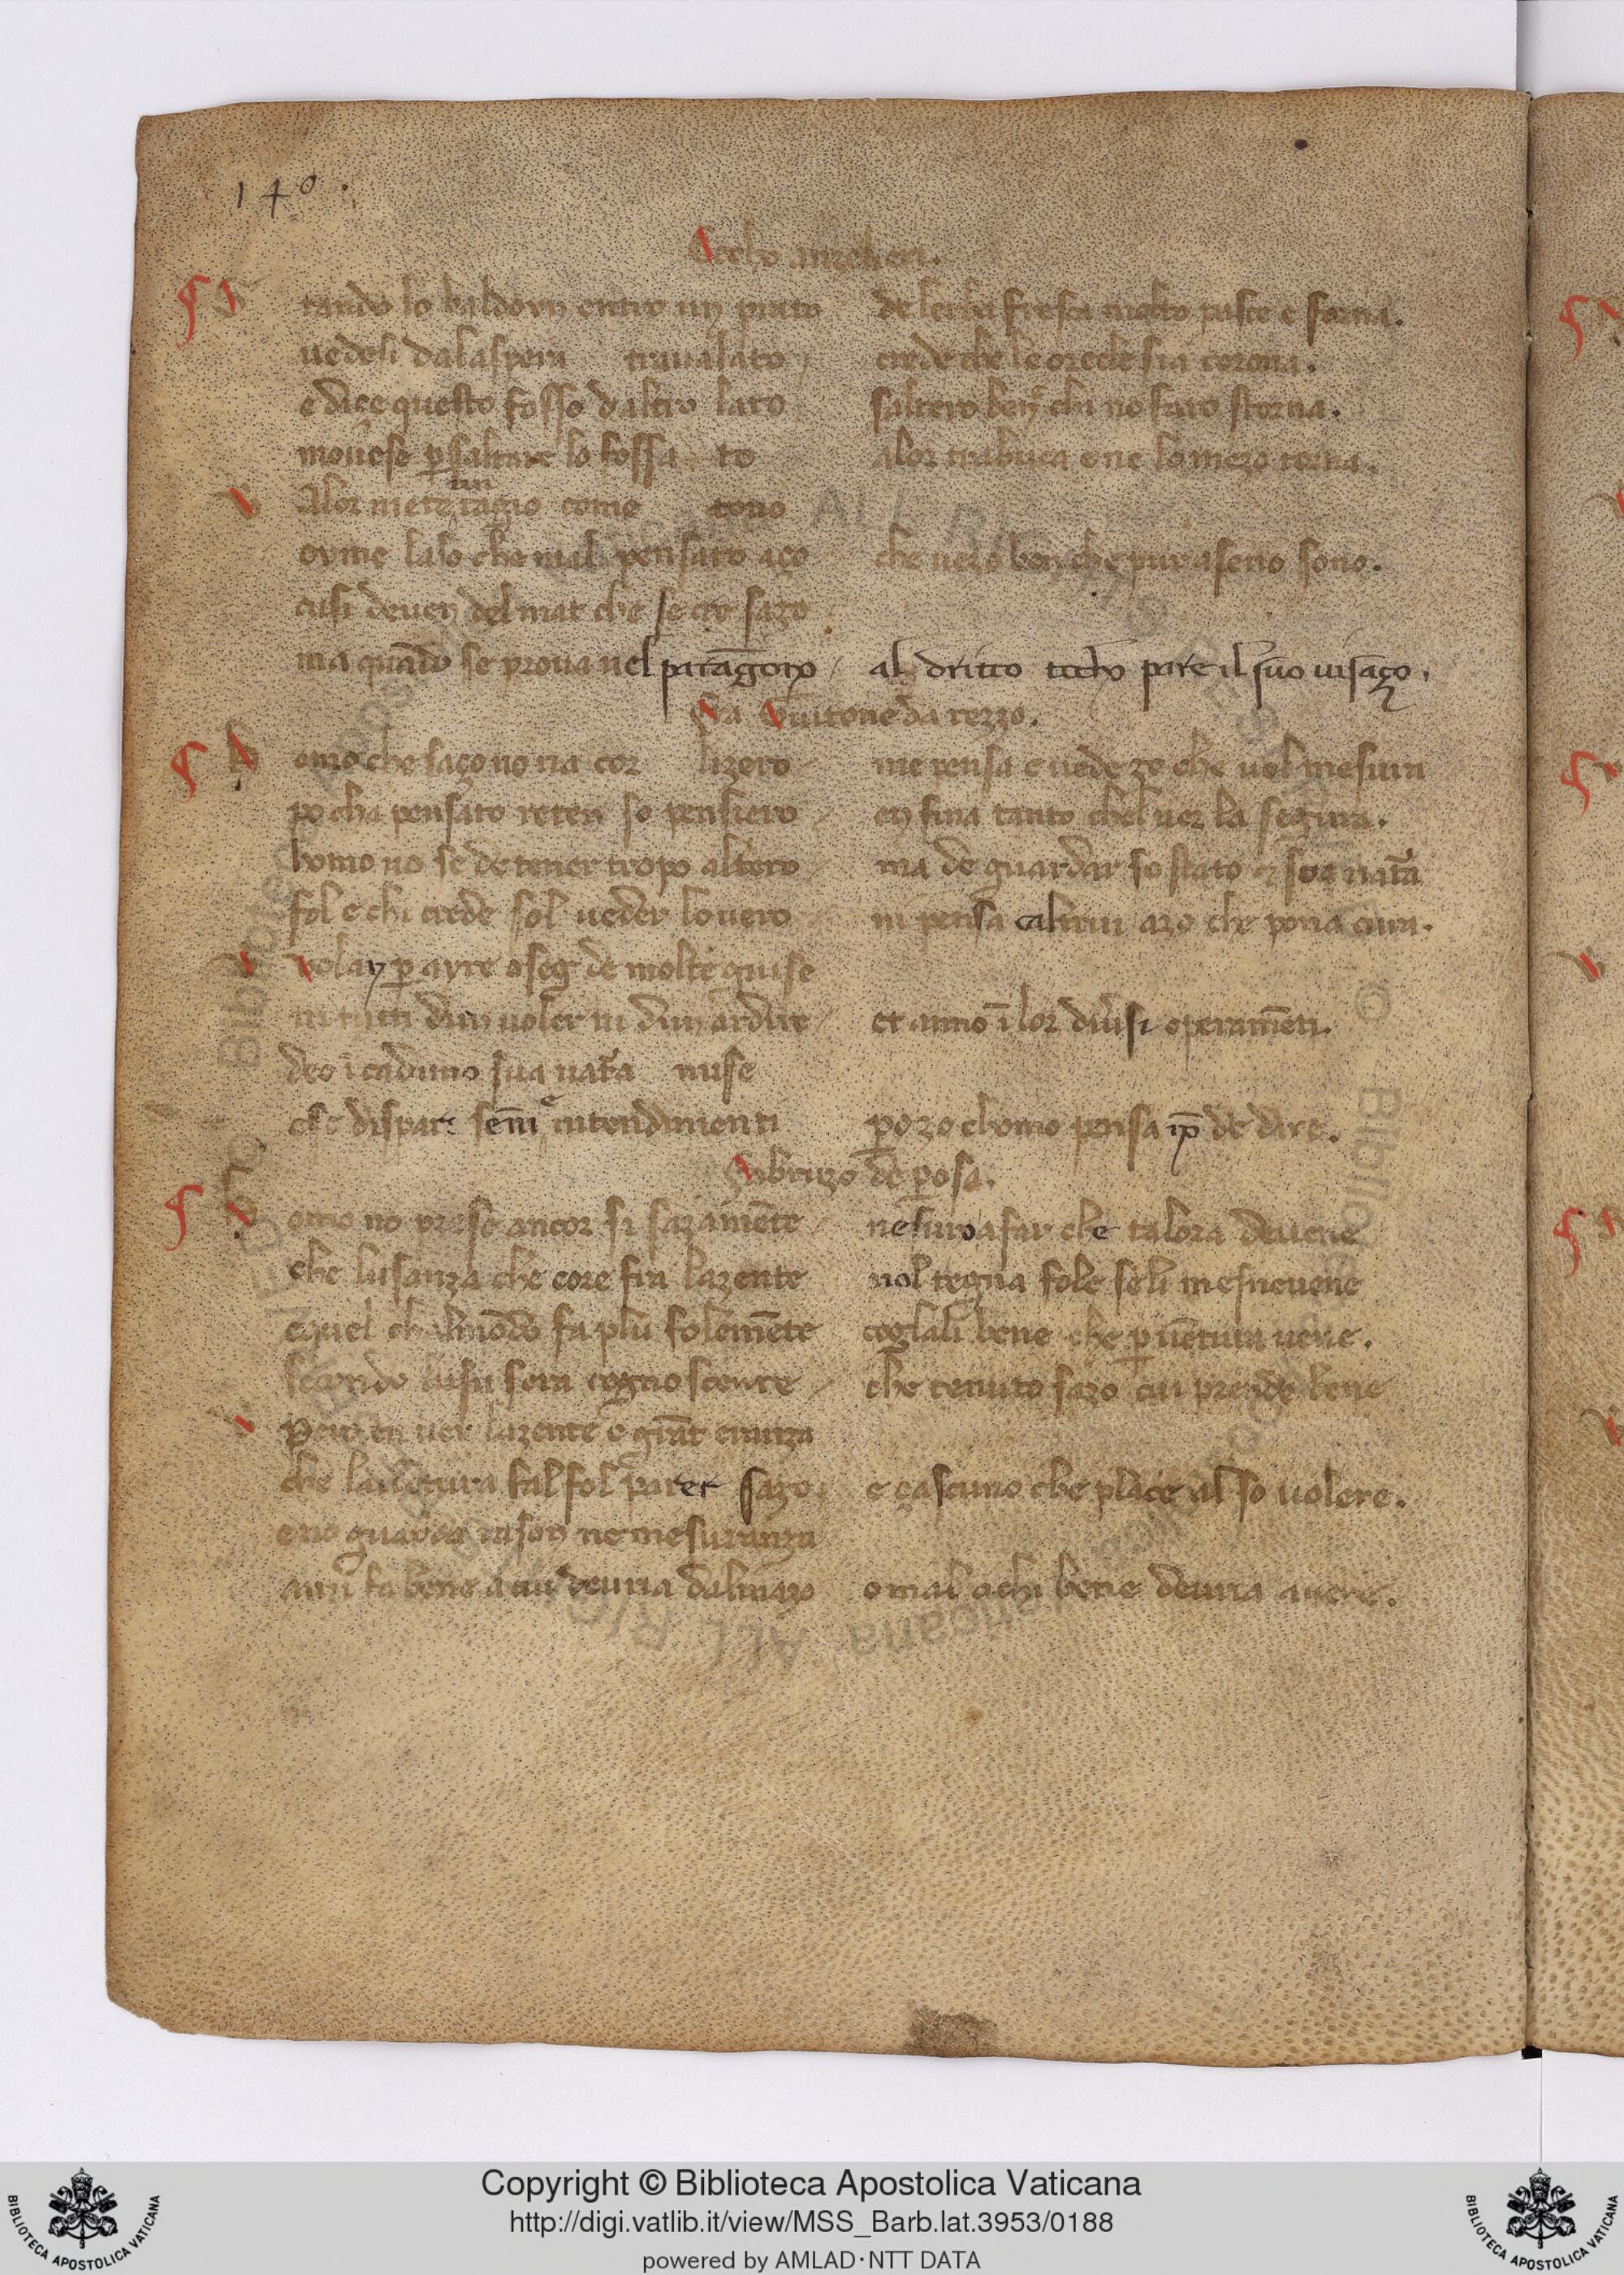 140.
Cecho anzelieri.
Stando lo baldovin entro un prato de lerba fresca molto pasce e forna.
vedesi dalaspera travalato crede che le orecle sia corona.
e dice questo fosso daltro lato saltero ben chi no faro storna.
movese p saltare lo fossa to alor trabuca e ne lo mezo torna.
Alor mete un ragio come tono
oyme laso che mal pensato aço che vezo ben che pur aseno sono.
cusi deven del mat che se cre sazo
ma quādo se prova nel paragono al dritto tocho pare il suo visaço.
Fra Guitone da rezzo.
Homo che saço no na cor lizero me pensa e vede zo che vol mesura
po cha pensato reten so pensiero en fina tanto chel ver la segura.
homo no se de tener tropo altero ma de guardar so stato e soa nata
fol e chi crede sol veder lo vero ni pensa caltrui azo che pona cura.
Volan p ayre oseg de molte guise
ni tuti dun voler ni dun ardire et anno ī lor divsi operamēti.
deo ī caduno sua nata mise
che dispar senni e intendimenti po zo chomo pensa nō de dire.
Ubrizo de posa.
Homo no prese ancor si sazamēte nesuno afar che talora devene
che lusanza che core fra lazente nol tegna fole seli mesnevene
equel chalmōdo fa plu folemēte coglali bene che p vētura vene.
secondo lusu sera cognoscente che tenuto sazo cui prende bene
Pero en ver lazente e grāt eranza
che la vētura fal fol parer sazo. e çascuno che place al so volere.
e no guarda rason ne mesuranza
anzi fa bene a cui devria dalmazo o mal a chi bene devria avere.
Copyright © Biblioteca Apostolica Vaticana
http://digi.vatlib.it/view/MSS_Barb.lat.3953/0188
powered by AMLAD·NTT DATA